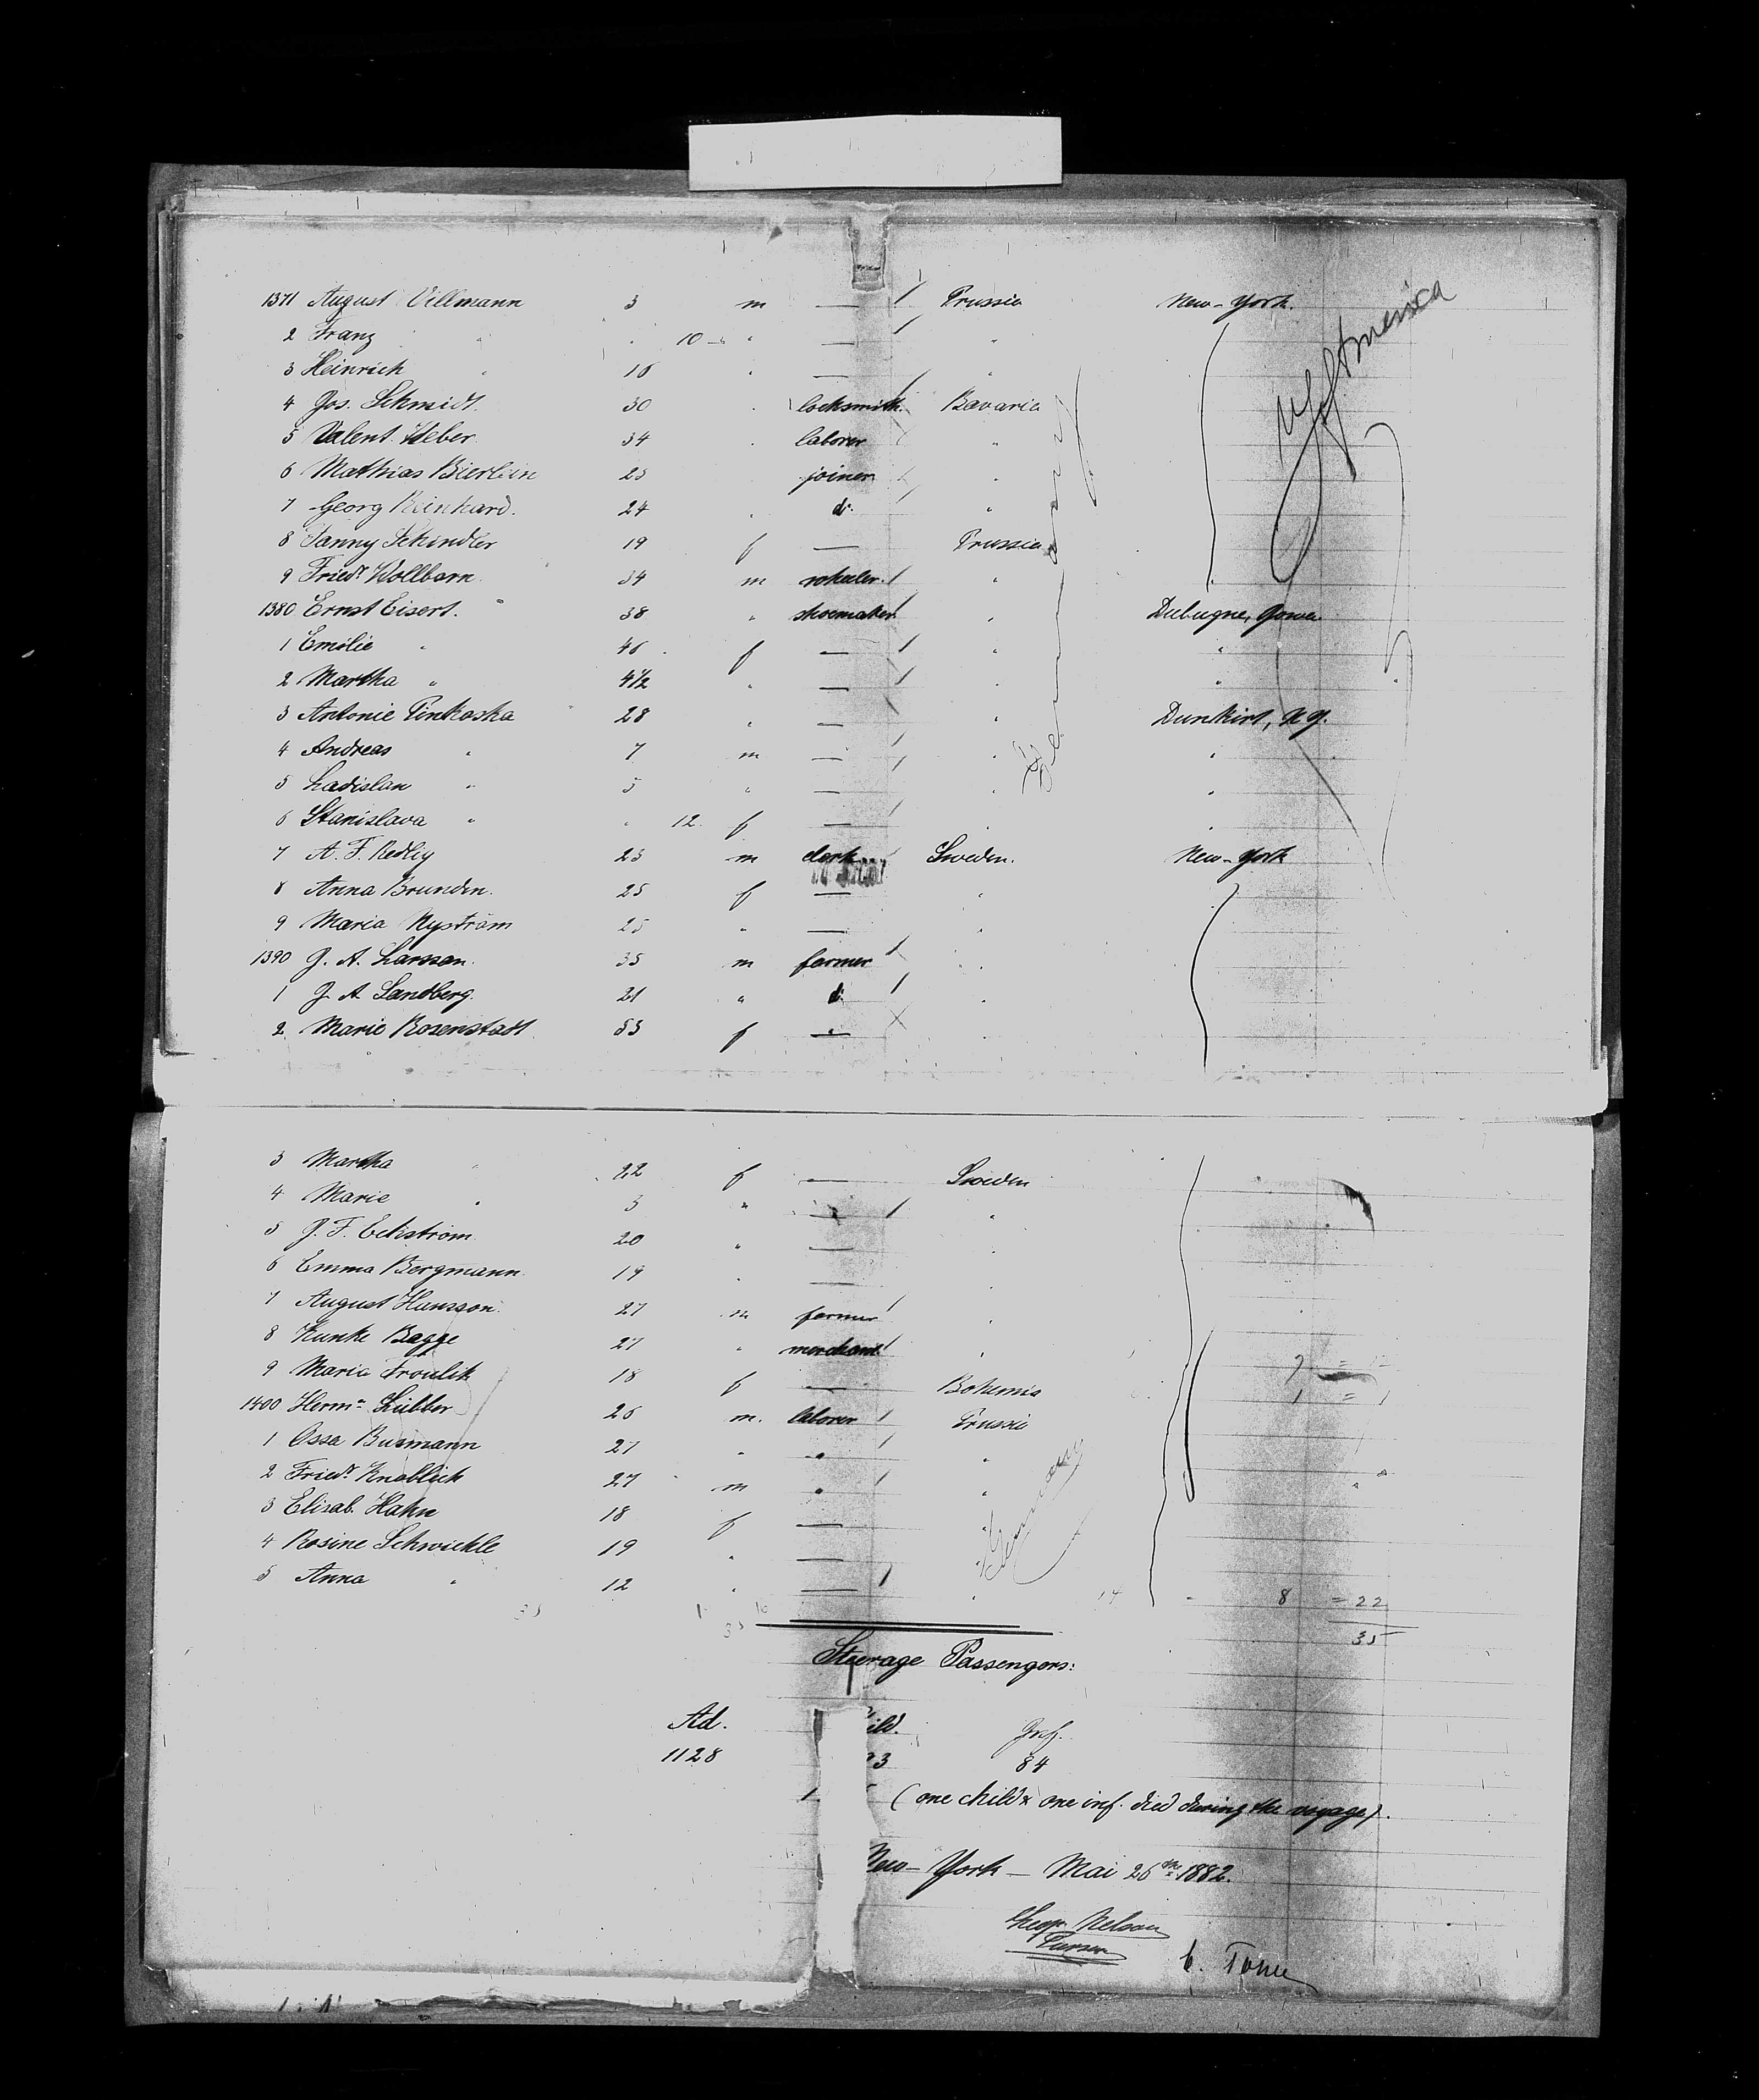 1371 August Villmann 3 m — / Prussia New-York.
2 Franz " " 10 " — / "
3 Heinrich " 16 " — "
4 Jos. Schmidt. 30 " locksmith. / Bavaria
5 Valent. Weber 34 " laborer "
6 Mathias Bierlein 25 joiner "
7 Georg Reinhard. 24 " do. "
8 Fanny Schindler 19 f — Prussia
9 Friedr. Kollbarn 34 m /
1380 Ernst Eisert. 38 " shoemaker / " Dubuque, Jowa
1 Emilie " 46 f — / " "
2 Martha " 4½ " — / " "
3 Antonie Pinkoska 28 " — " Dunkirt, N.Y.
4 Andreas " 7 m — / " "
5 Ladislau " 5 " — " "
6 Stanislava " " 12 f — / " "
7 A. F. Redlig 25 m clerk / Sweden. New-York
8 Anna Brunden. 25 f — "
9 Maria Nyström 25 " — "
1390 J. A. Larsson. 35 m farmer / "
1 J. A. Sandberg. 21 " do / "
2 Marie Rosenstadt 53 f — X "
Germany
America
3 Martha " 22 f — Sweden
4 Marie " 3 " — / "
5 J. F. Eckström 20 " — "
6 Emma Bergmann 19 " — "
7 August Hansson. 27 m farmer / "
8 Kunke Bagge 27 " merchant / "
9 Maria Froulik 18 f — Bohemia
1400 Hermn. Lübber 26 m. laborer / Prussia
1 Ossa Busmann 27 " " / "
2 Friedr. Knoblich 27 m " / "
3 Elisab. Hahn 18 f — "
4 Rosine Schwickle 19 " — "
5 Anna " 12 " — / "
Germany
14 - 8 = 22
35
Steerage Passengers:
Ad. ild. Inf.
1128 3 84
(one child & one inf. died during the voyage).
New-York — Mai 26th 1882.
Nelson
Purser